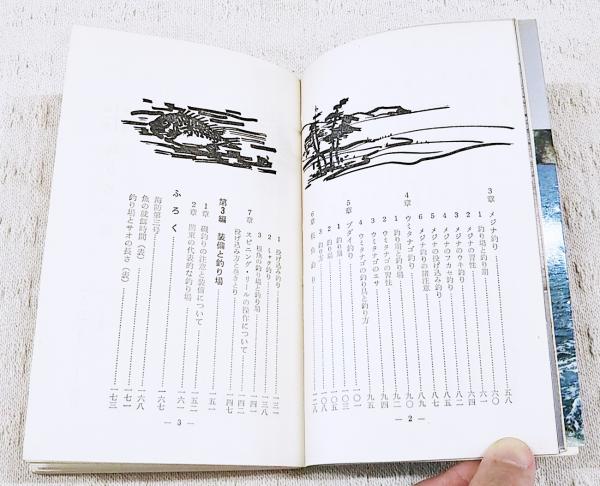 3章 メジナ釣り……五八
1 釣り場と釣り期……六〇
2 メジナの習性……六一
3 メジナのウキ釣り……六四
4 メジナのフカセ釣り……八二
5 メジナの投げ込み釣り……八六
6 メジナ釣りの諸注意……八九
4章 ウミタナゴ釣り……九二
1 釣り場と釣り期……九四
2 ウミタナゴの習性……九五
3 ウミタナゴのエサ
4 ウミタナゴの釣り具と釣り方
5章 ブダイ釣り……一〇一
1 釣り期……一〇三
2 釣り場……一〇五
3 釣り方……一〇八
6章 根魚釣り……一二八
— 2 —
1 投げ込み釣り……一三一
2 ミャク釣り……一三八
3 根魚の釣り場と釣り場……一四一
7章 スピニング・リールの操作について……一四二
投げ込み方と巻きとり……一四七
第3編 装備と釣り場
1章 磯釣りの注意と装備について……一五二
2章 関東の代表的な釣り場……一六一
ふろく
海防第三号……一六七
魚の就餌時間(表)……一六八
釣り場とサオの長さ(表)……一七一
一七三
— 3 —